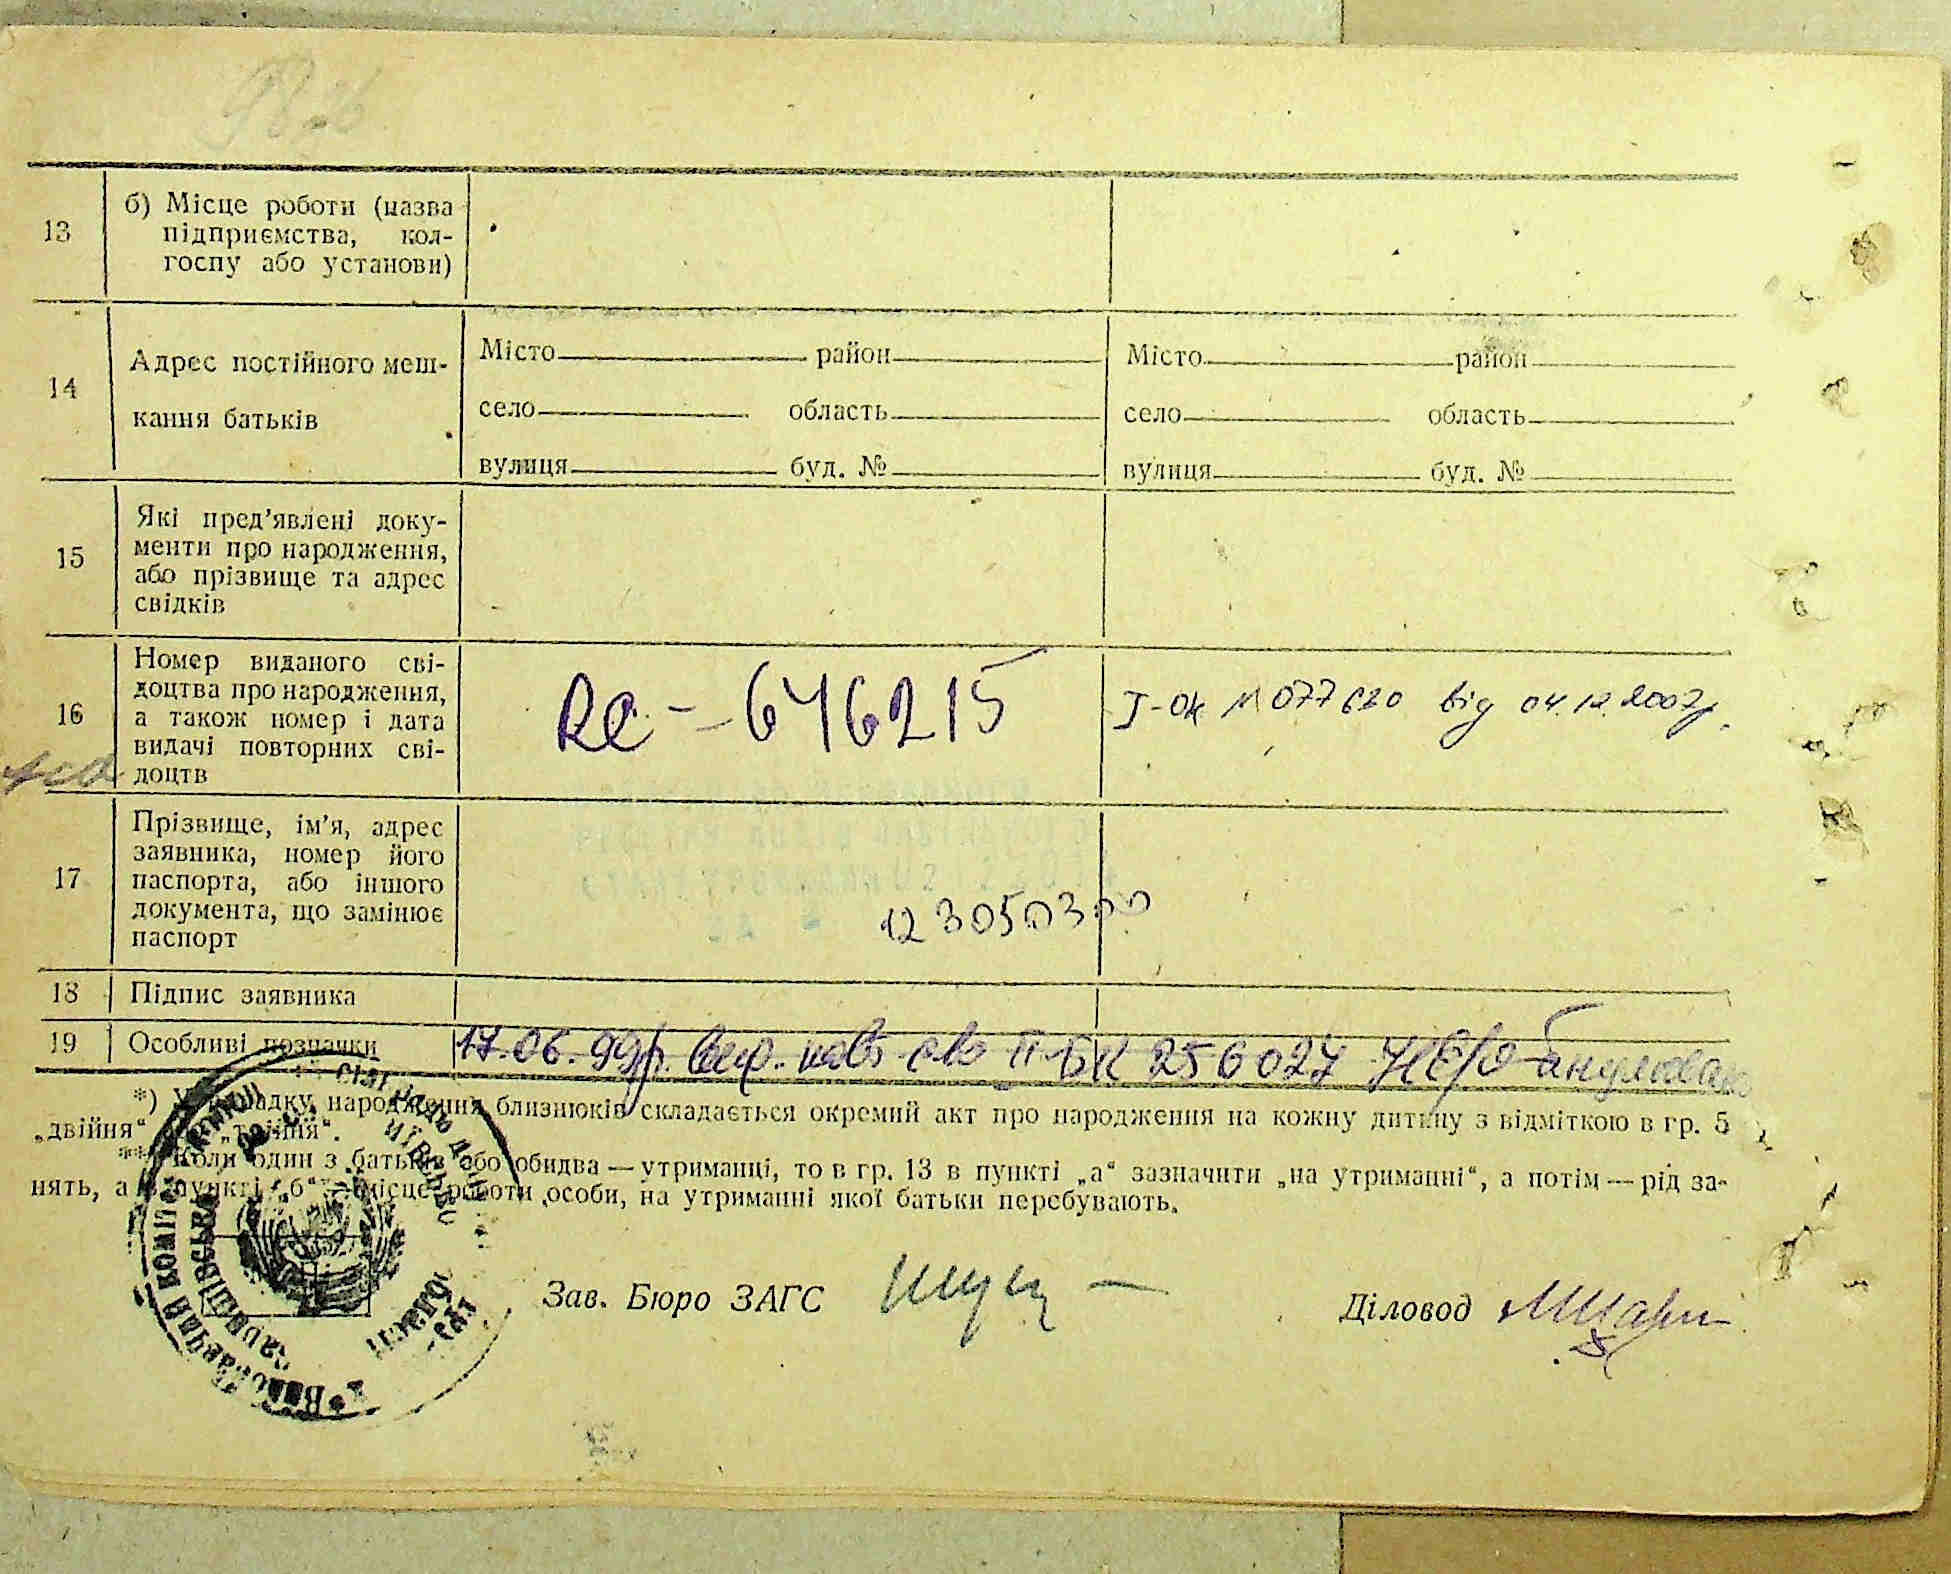 13
б) Місце роботи (назва
підприємства, кол-
госпу або установи)
14
Адрес постійного меш-
кання батьків
Місто район
село область
вулиця буд. №
Місто район
село область
вулиця буд. №
15
Які пред'явлені доку-
менти про народження,
або прізвище та адрес
свідків
16
Номер виданого сві-
доцтва про народження,
а також номер і дата
видачі повторних сві-
доцтв
646215
І-ОК № 077620 від 04.12.2007р.
17
Прізвище, ім'я, адрес
заявника, номер його
паспорта, або іншого
документа, що замінює
паспорт
1230503
18
Підпис заявника
19
Особливі позначки
17.06.99р. ІІ БК 256027
*) У випадку народження близнюків складається окремий акт про народження на кожну дитину з відміткою в гр. 5
„двійня“ „трійня“.
**) Коли один з батьків або обидва — утриманці, то в гр. 13 в пункті „а“ зазначити „на утриманні“, а потім — рід за-
нять, а в пункті „б“ місце роботи особи, на утриманні якої батьки перебувають.
Зав. Бюро ЗАГС
Діловод